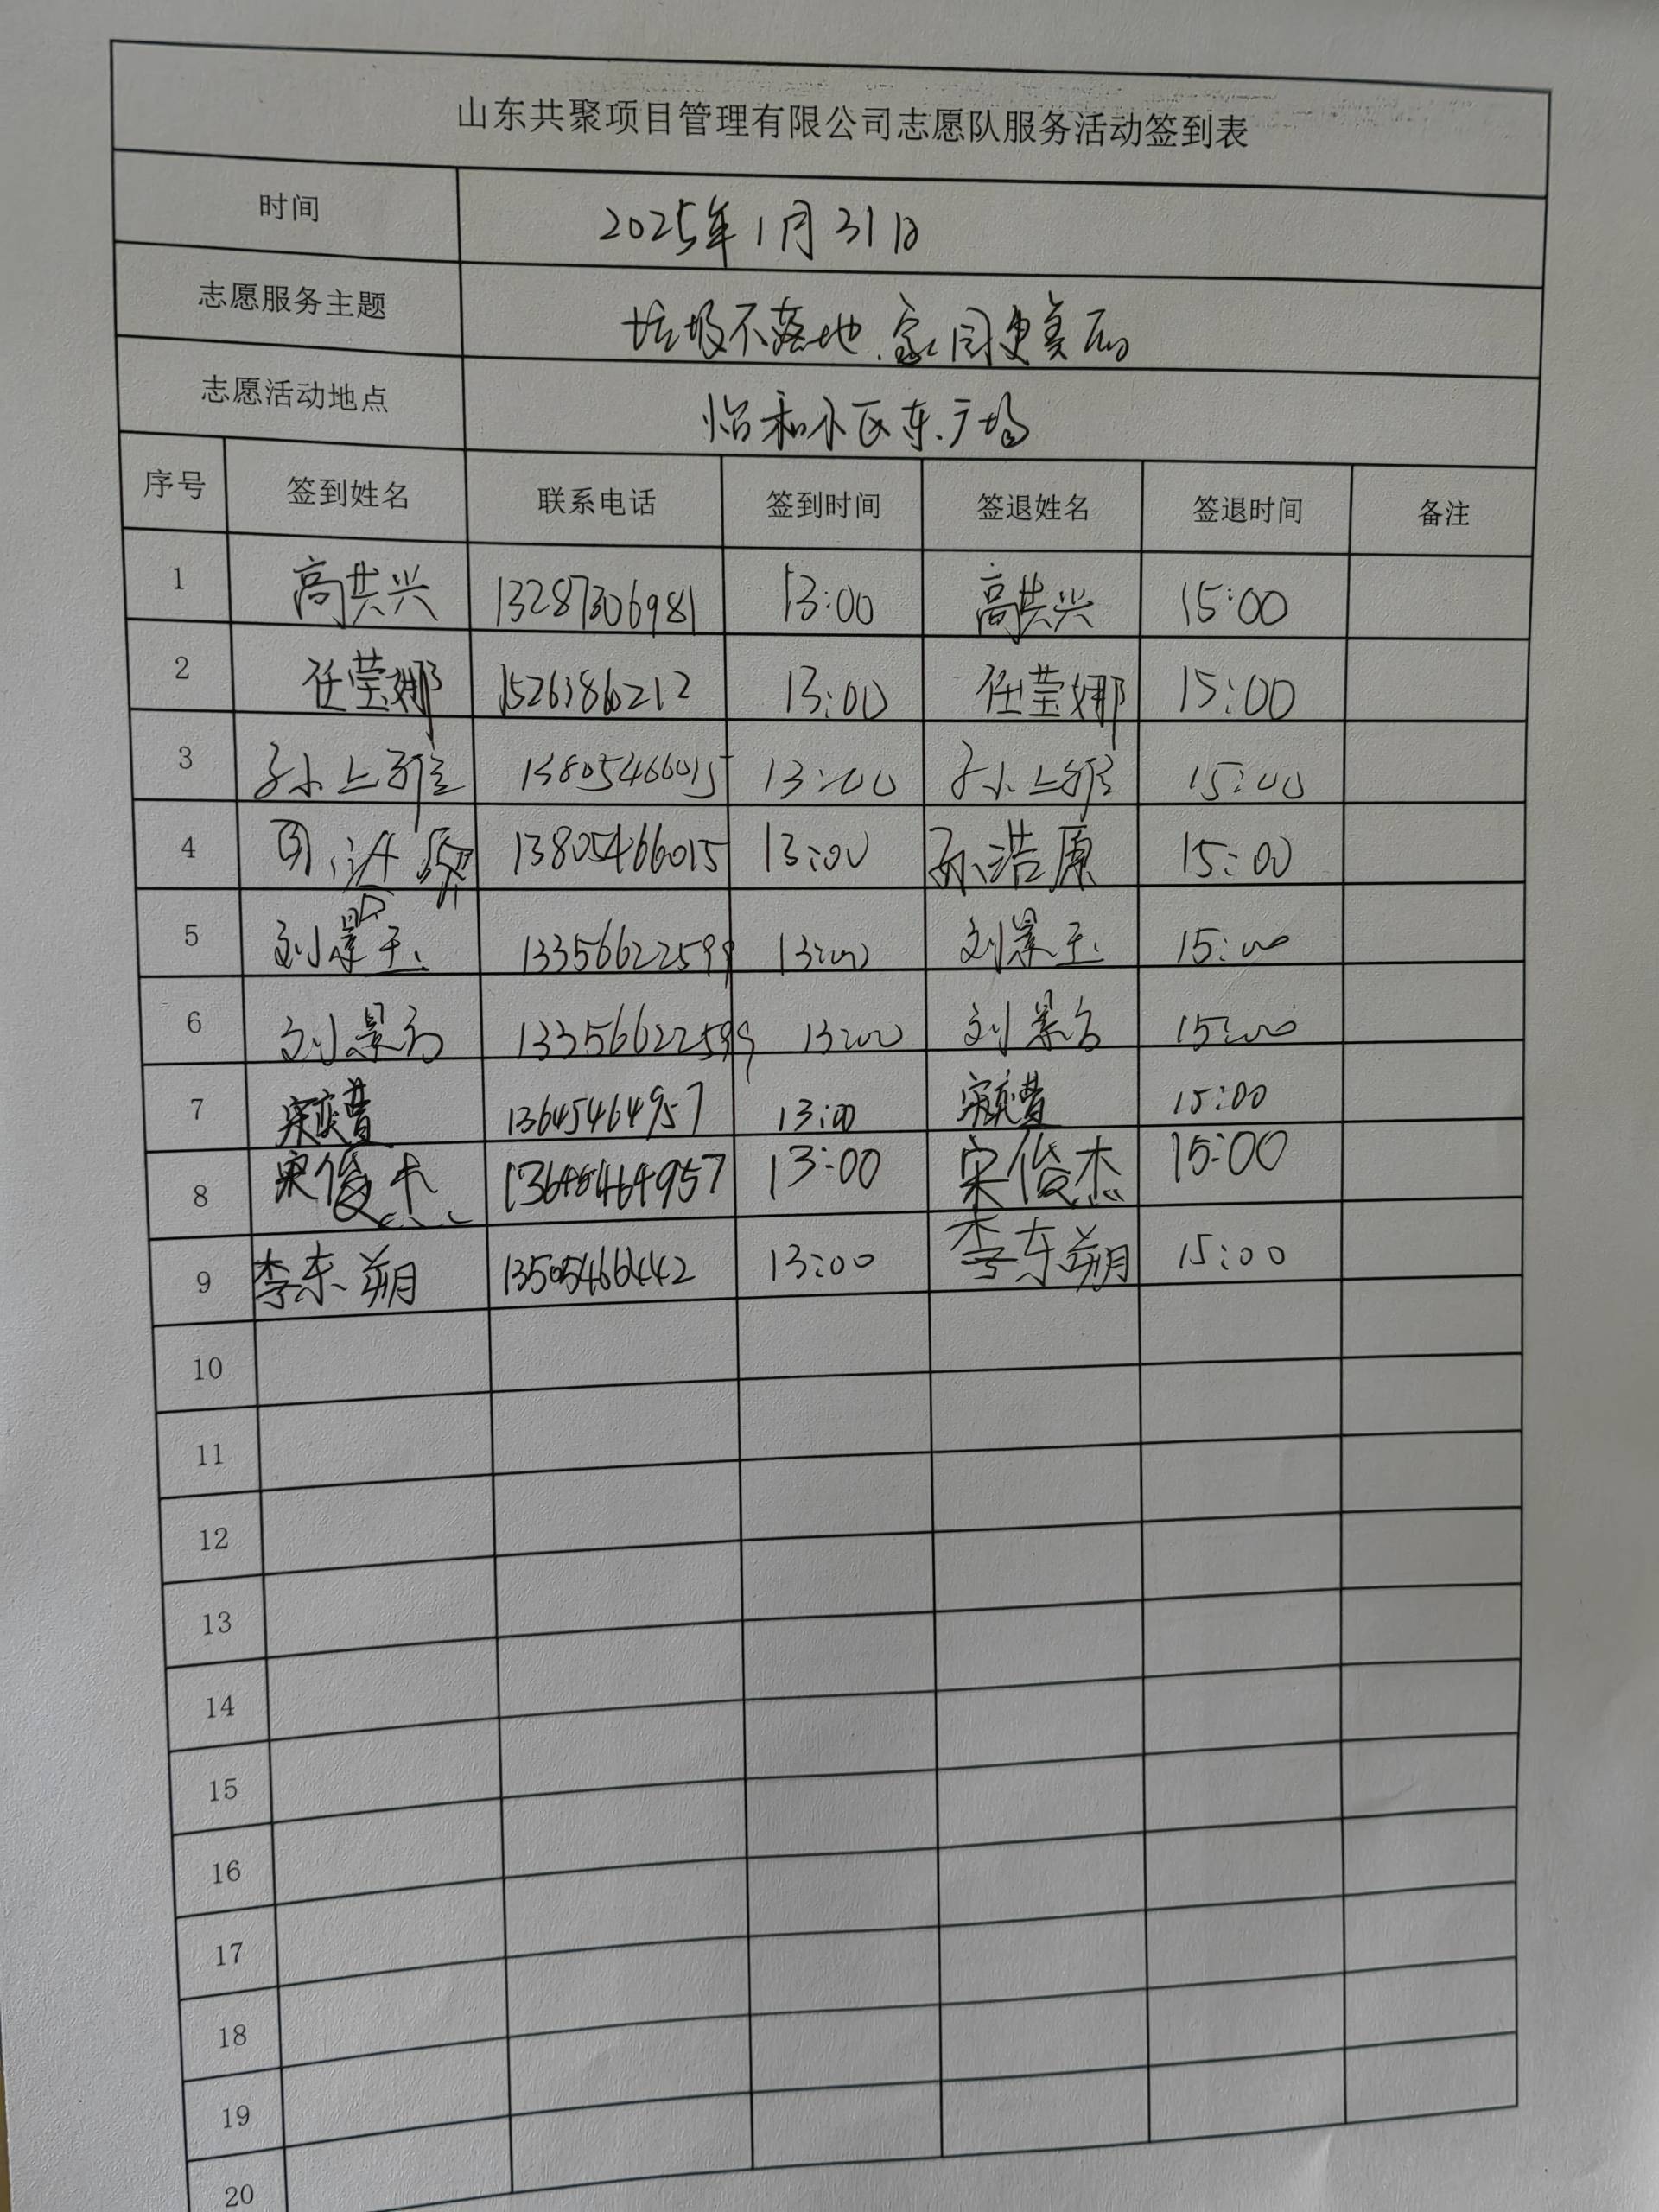 山东共聚项目管理有限公司志愿队服务活动签到表
时间 2025年1月31日
志愿服务主题 垃圾不落地、家园更美丽
志愿活动地点 怡和小区东广场
序号 签到姓名 联系电话 签到时间 签退姓名 签退时间 备注
1 高共兴 13287306981 13:00 高共兴 15:00
2 任莹娜 13:00 任莹娜 15:00
3 孙上雅 13805466015 13:00 孙上雅 15:00
4 13805466015 13:00 孙浩原 15:00
5 刘景玉 13356622599 13:00 刘景玉 15:00
6 刘景方 13356622599 13:00 刘景方 15:00
7 13645464957 13:00 15:00
8 宋俊杰 13645464957 13:00 宋俊杰 15:00
9 李东朔 13505466442 13:00 李东朔 15:00
10
11
12
13
14
15
16
17
18
19
20